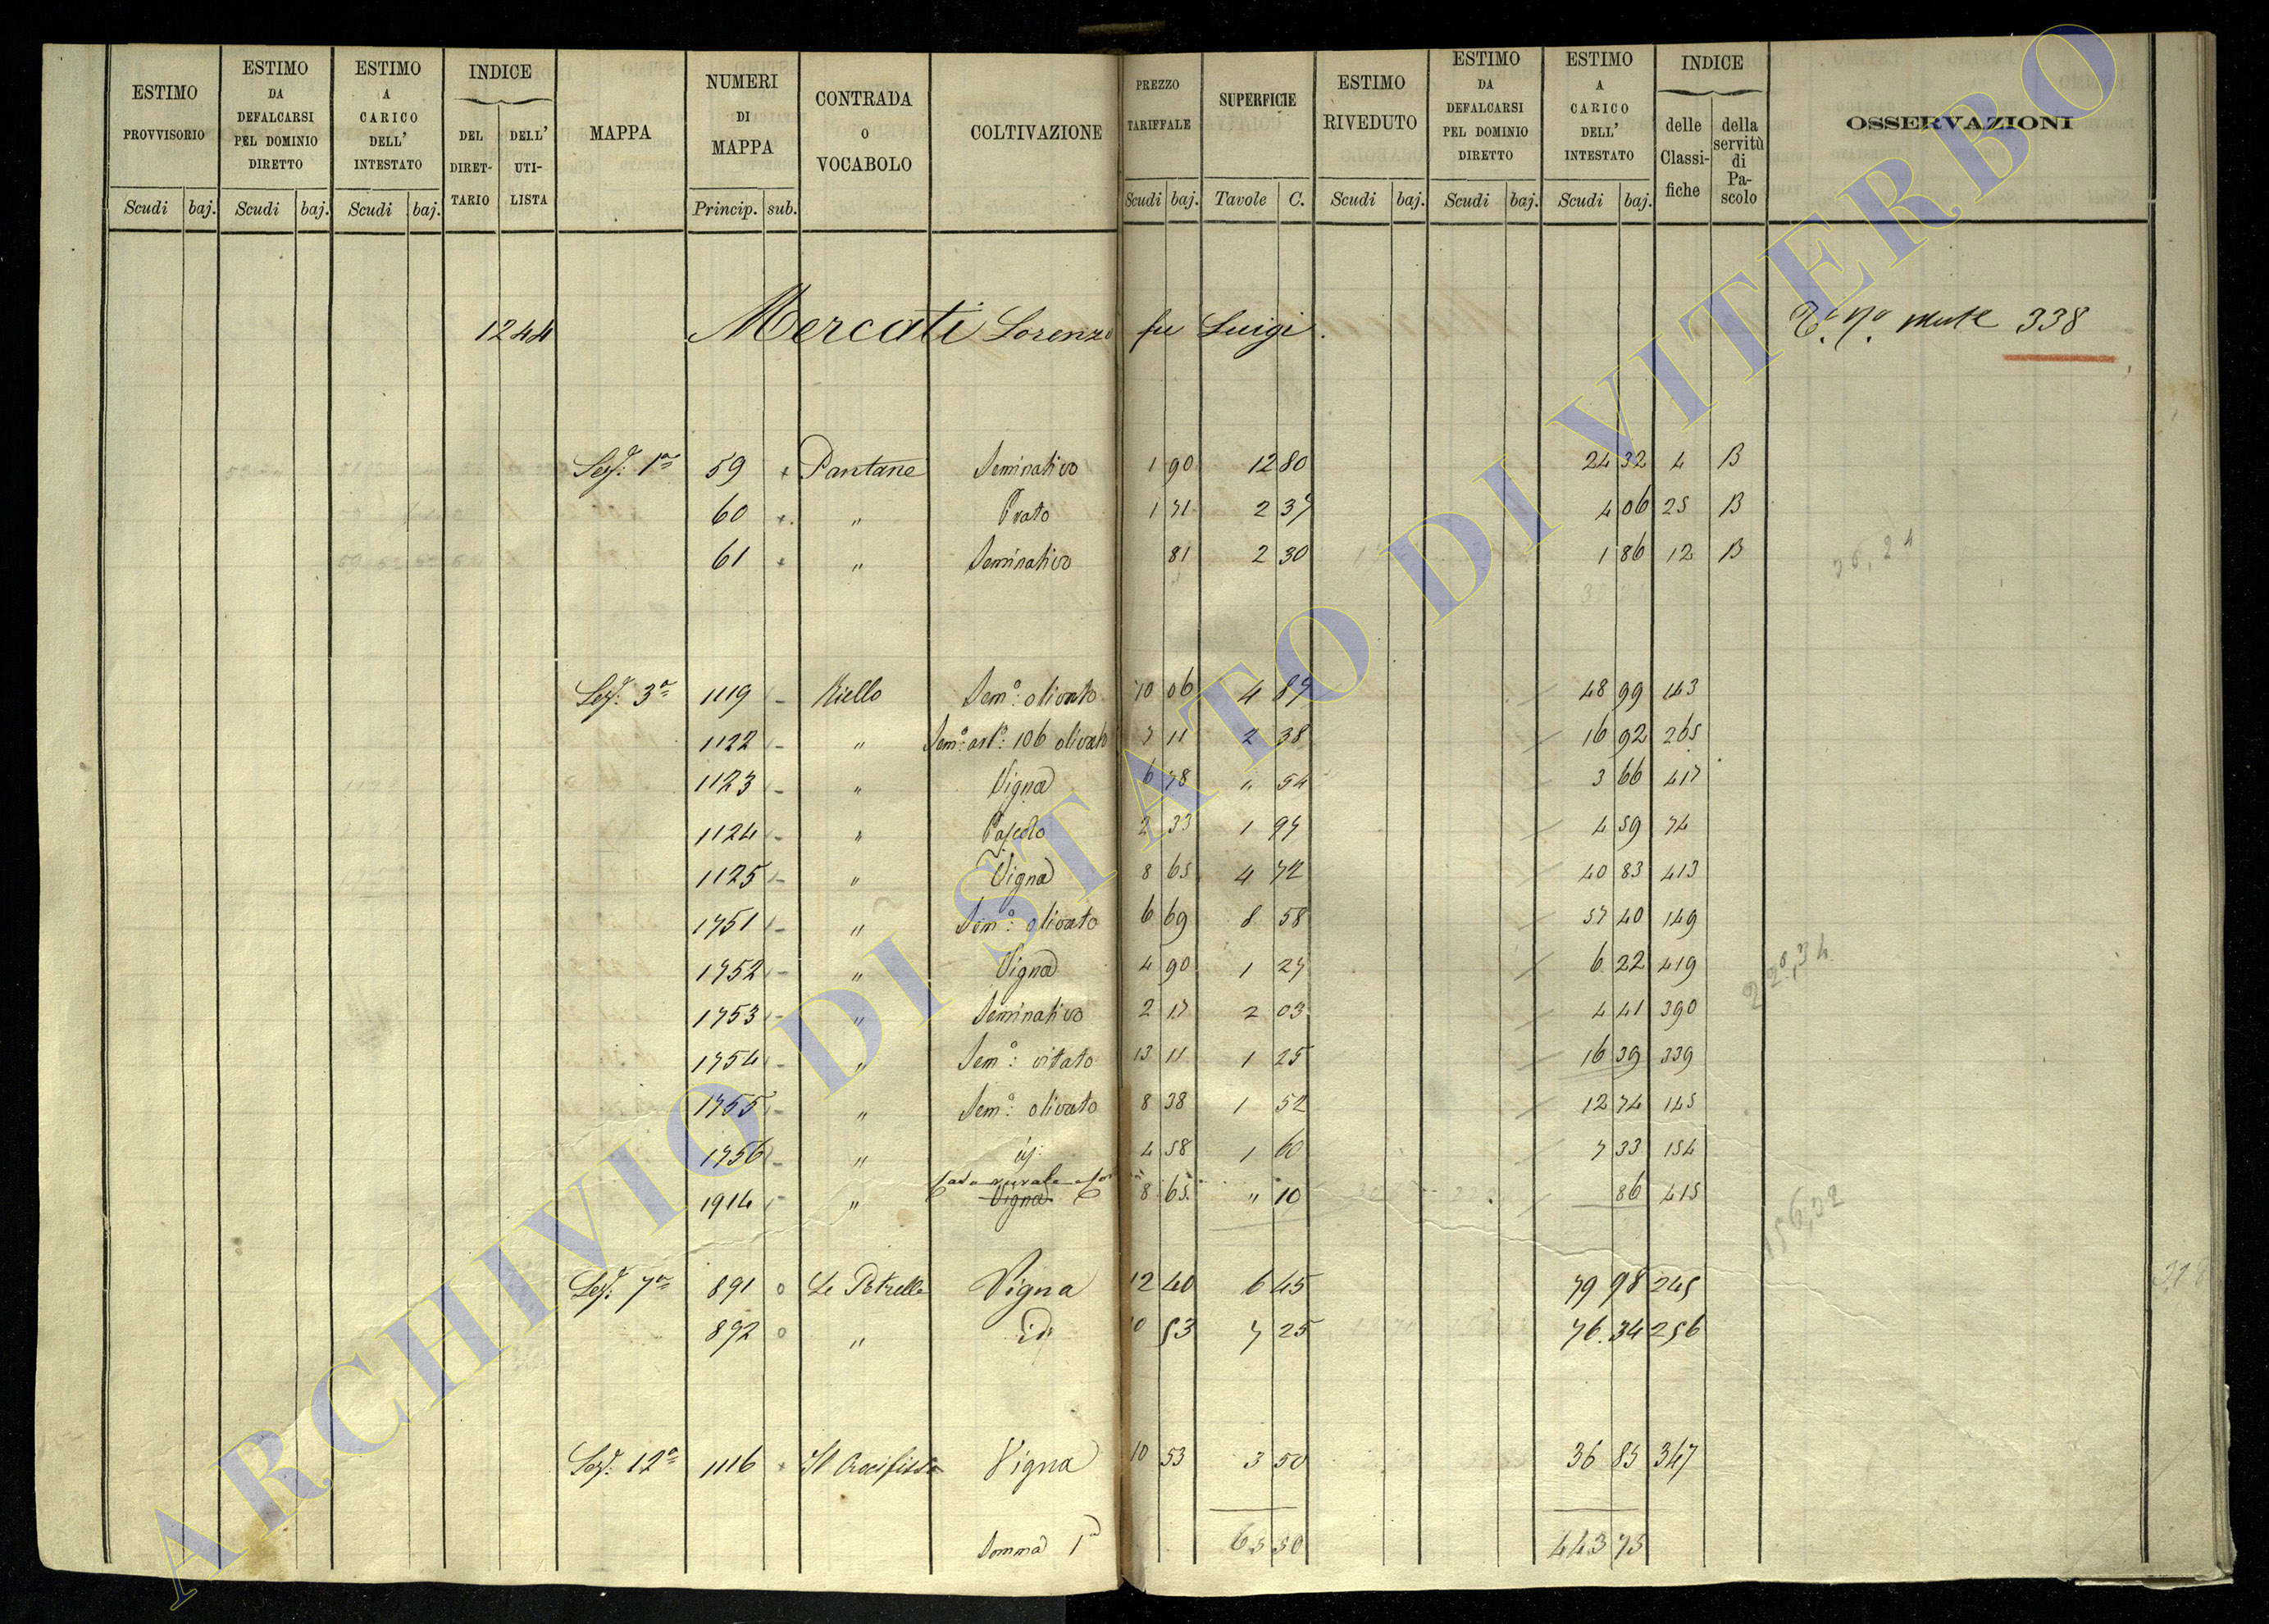 ESTIMO PROVVISORIO Scudi baj.
ESTIMO DA DEFALCARSI PEL DOMINIO DIRETTO Scudi baj.
ESTIMO A CARICO DELL' INTESTATO Scudi baj.
INDICE DEL DIRETTARIO DELL' UTILISTA
MAPPA
NUMERI DI MAPPA Princip. sub.
CONTRADA O VOCABOLO
COLTIVAZIONE
PREZZO TARIFFALE Scudi baj.
SUPERFICIE Tavole C.
ESTIMO RIVEDUTO Scudi baj.
ESTIMO DA DEFALCARSI PEL DOMINIO DIRETTO Scudi baj.
ESTIMO A CARICO DELL' INTESTATO Scudi baj.
INDICE delle Classifiche della servitù di Pascolo
OSSERVAZIONI
1244 Mercati Lorenzo fu Luigi. 338
Sez: 1a 59 Pantane Seminativo 1 90 12 80 24 32 4 B
60 " Prato 1 71 2 37 4 06 25 B
61 " Seminativo 81 2 30 1 86 12 B
Sez: 3a 1119 Riello Sem.o olivato 10 06 4 87 48 99 143
1122 " Sem.o art.o 106 olivato 7 11 2 38 16 92 265
1123 " Vigna 6 78 " 54 3 66 417
1124 " Pascolo 2 33 1 97 4 59 74
1125 " Vigna 8 65 4 72 40 83 413
1751 " Sem.o olivato 6 69 8 58 57 40 149
1752 " Vigna 4 90 1 27 6 22 419
1753 " Seminativo 2 17 2 03 4 41 390
1754 " Sem.o vitato 13 11 1 25 16 39 339
1755 " Sem.o olivato 8 38 1 52 12 74 145
1756 " id. 4 58 1 60 7 33 154
1914 " Casa rurale Vigna 8 65 " 10 86 415
Sez: 7a 891 Le Petrelle Vigna 12 40 6 45 79 98 245
892 " id. 10 53 7 25 76 34 256
Sez: 12a 1116 Il Crocifisso Vigna 10 53 3 50 36 85 347
Somma 1a 65 50 443 75
ARCHIVIO DI STATO DI VITERBO